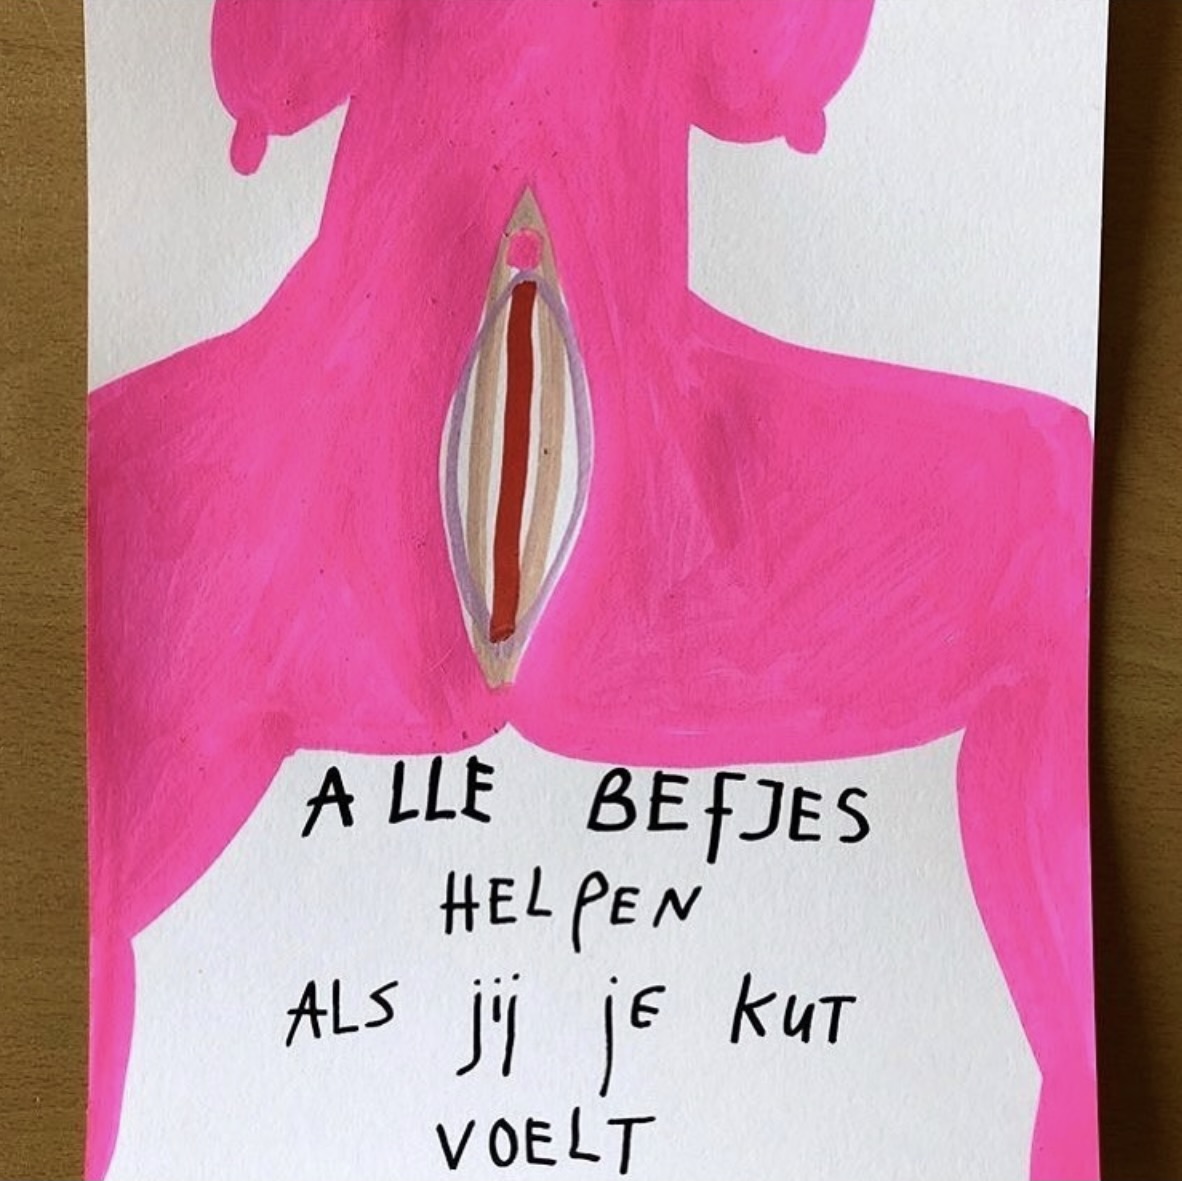 ALLE BEFJES
HELPEN
ALS jij jE KUT
VOELT